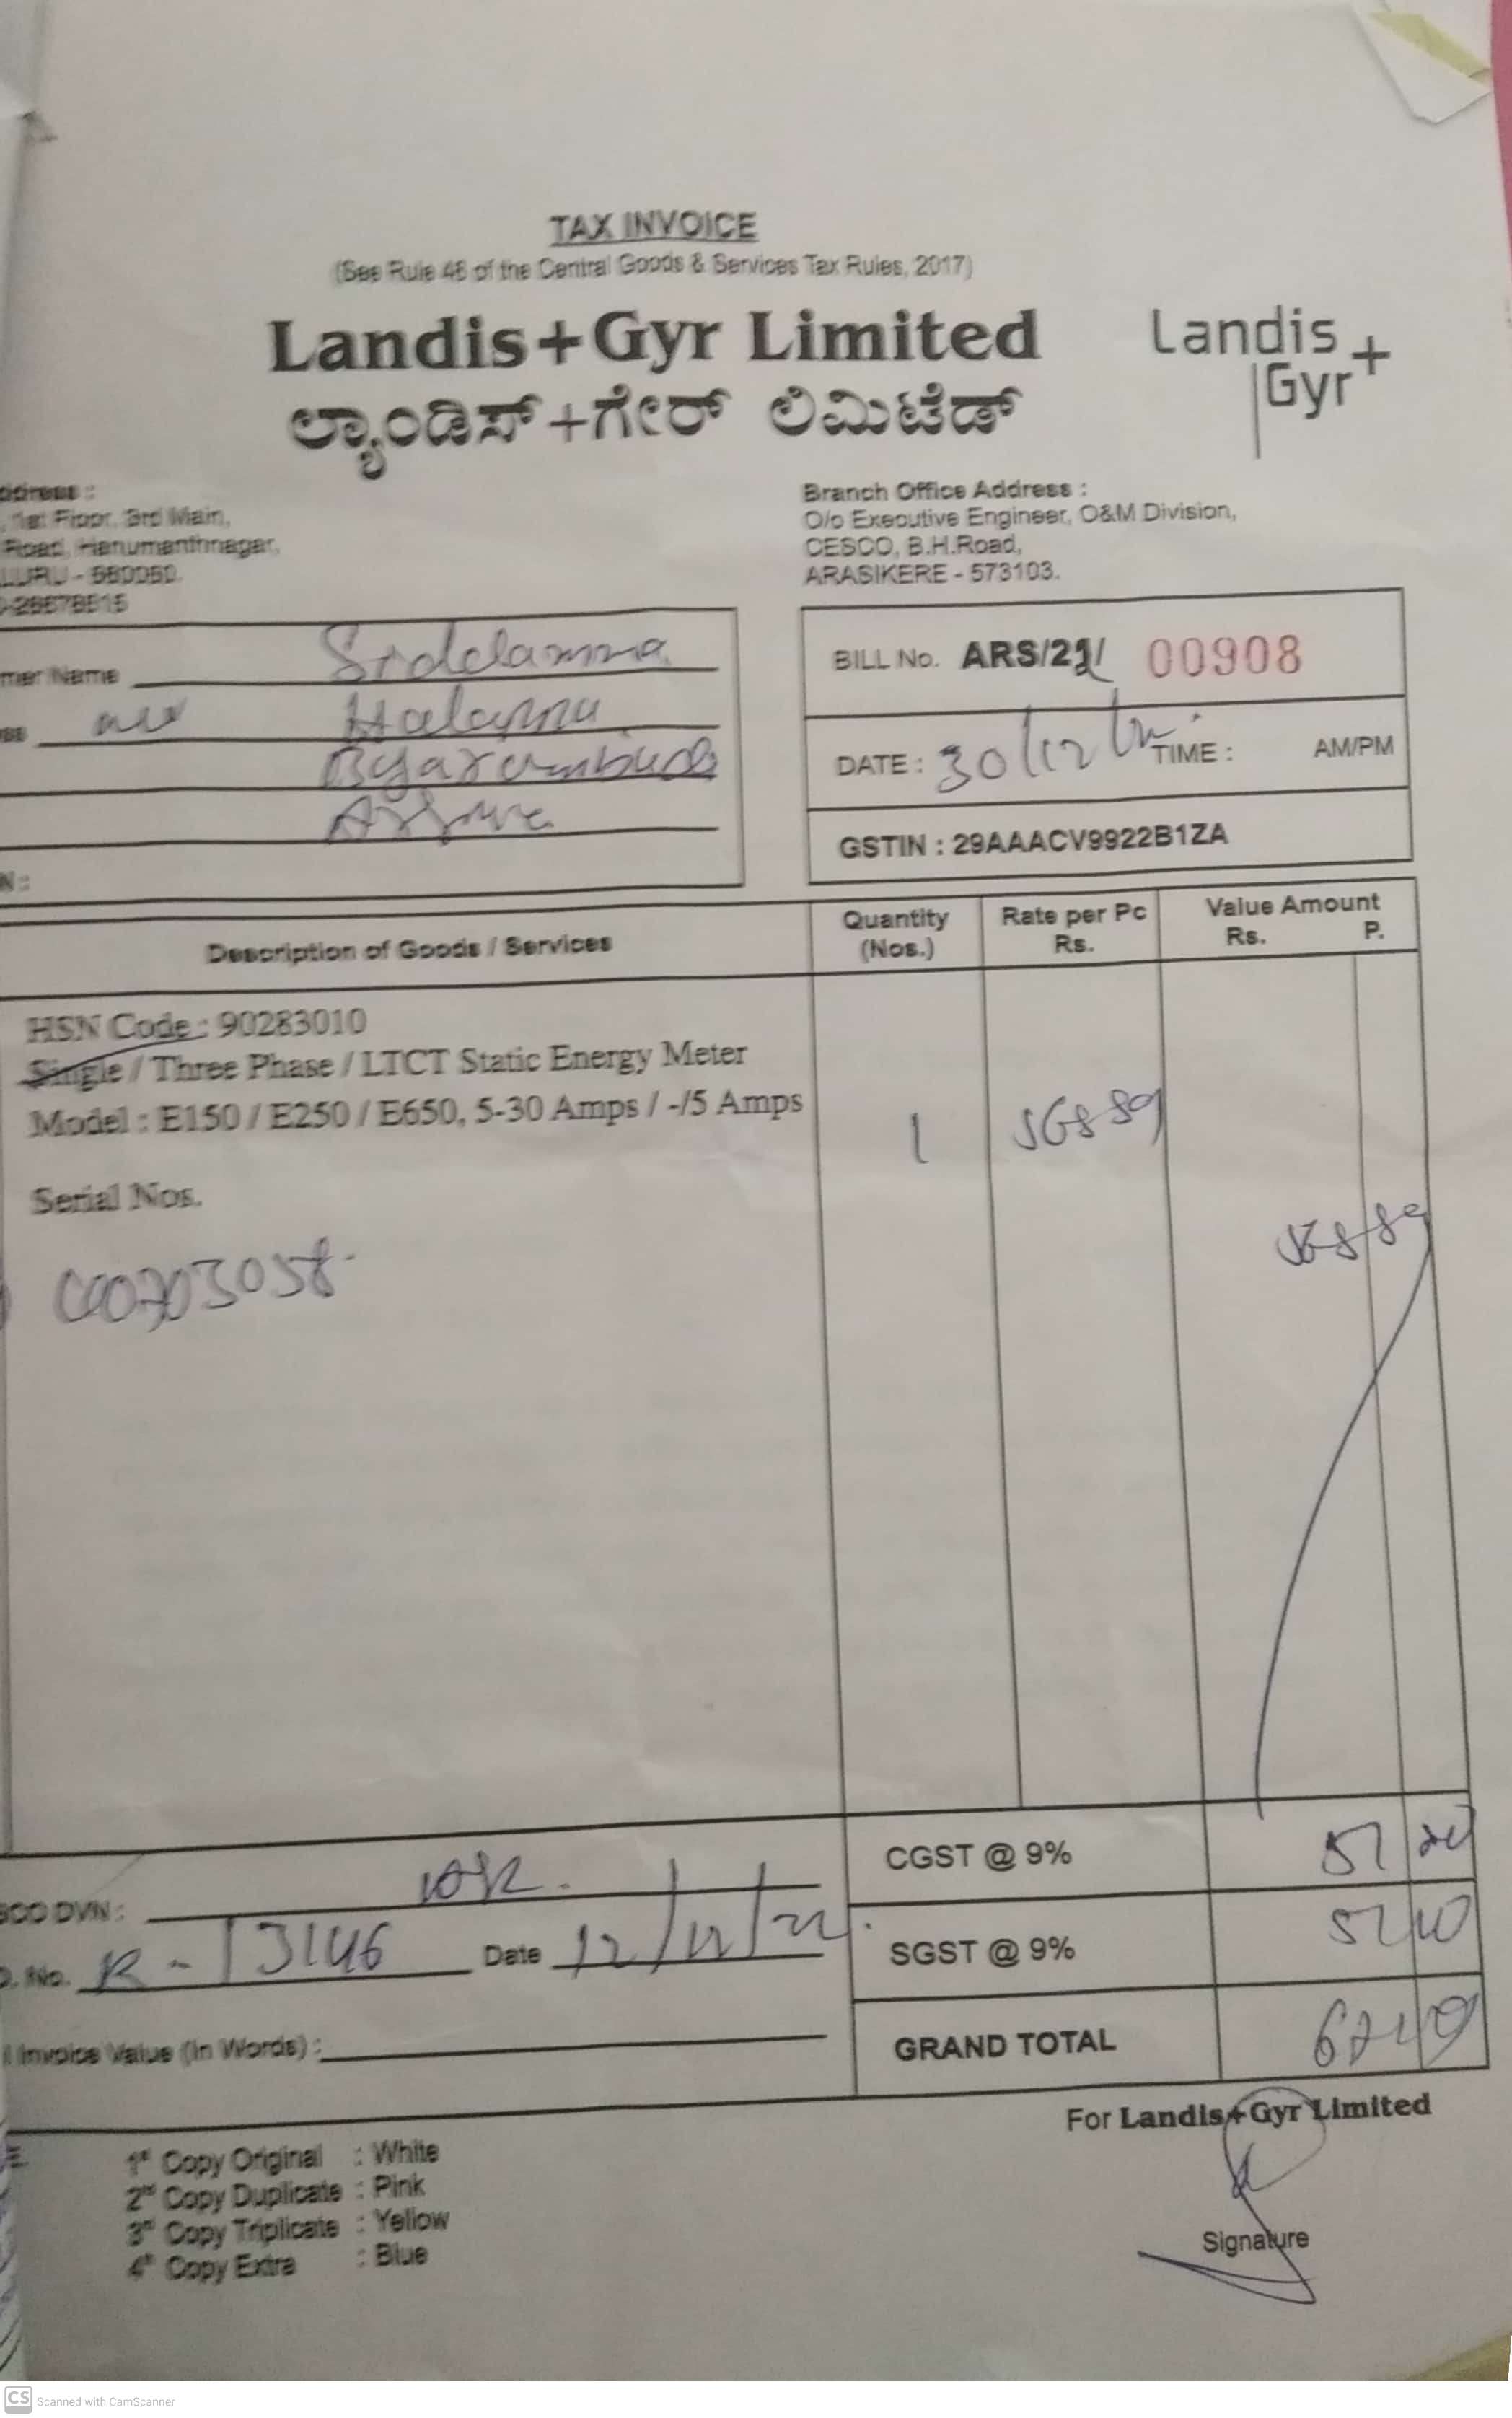 TAX INVOICE
(See Rule 46 of the Central Goods & Services Tax Rules, 2017)
Landis+Gyr Limited
ಲ್ಯಾಂಡಿಸ್+ಗೇರ್ ಲಿಮಿಟೆಡ್
Landis
Gyr+
ddress :
1st Floor, 3rd Main,
Road, Hanumanthnagar,
LURU - 560050.
-26678615
Branch Office Address :
O/o Executive Engineer, O&M Division,
CESCO, B.H.Road,
ARASIKERE - 573103.
mer Name Siddamma
ss
N :
BILL No. ARS/22/ 00908
DATE : 30/12/22 TIME : AM/PM
GSTIN : 29AAACV9922B1ZA
Description of Goods / Services
Quantity (Nos.)
Rate per Pc Rs.
Value Amount Rs. P.
HSN Code : 90283010
Single / Three Phase / LTCT Static Energy Meter
Model : E150 / E250 / E650, 5-30 Amps / -/5 Amps
1 568 89
Serial Nos.
568 89
CGST @ 9% 51 20
SCO DVN :
SGST @ 9% 51 20
O. No. R - 13146 Date 12/12/22
l Invoice Value (In Words) :
GRAND TOTAL
For Landis+Gyr Limited
1st Copy Original : White
2nd Copy Duplicate : Pink
3rd Copy Triplicate : Yellow
4th Copy Extra : Blue
Signature
CS Scanned with CamScanner